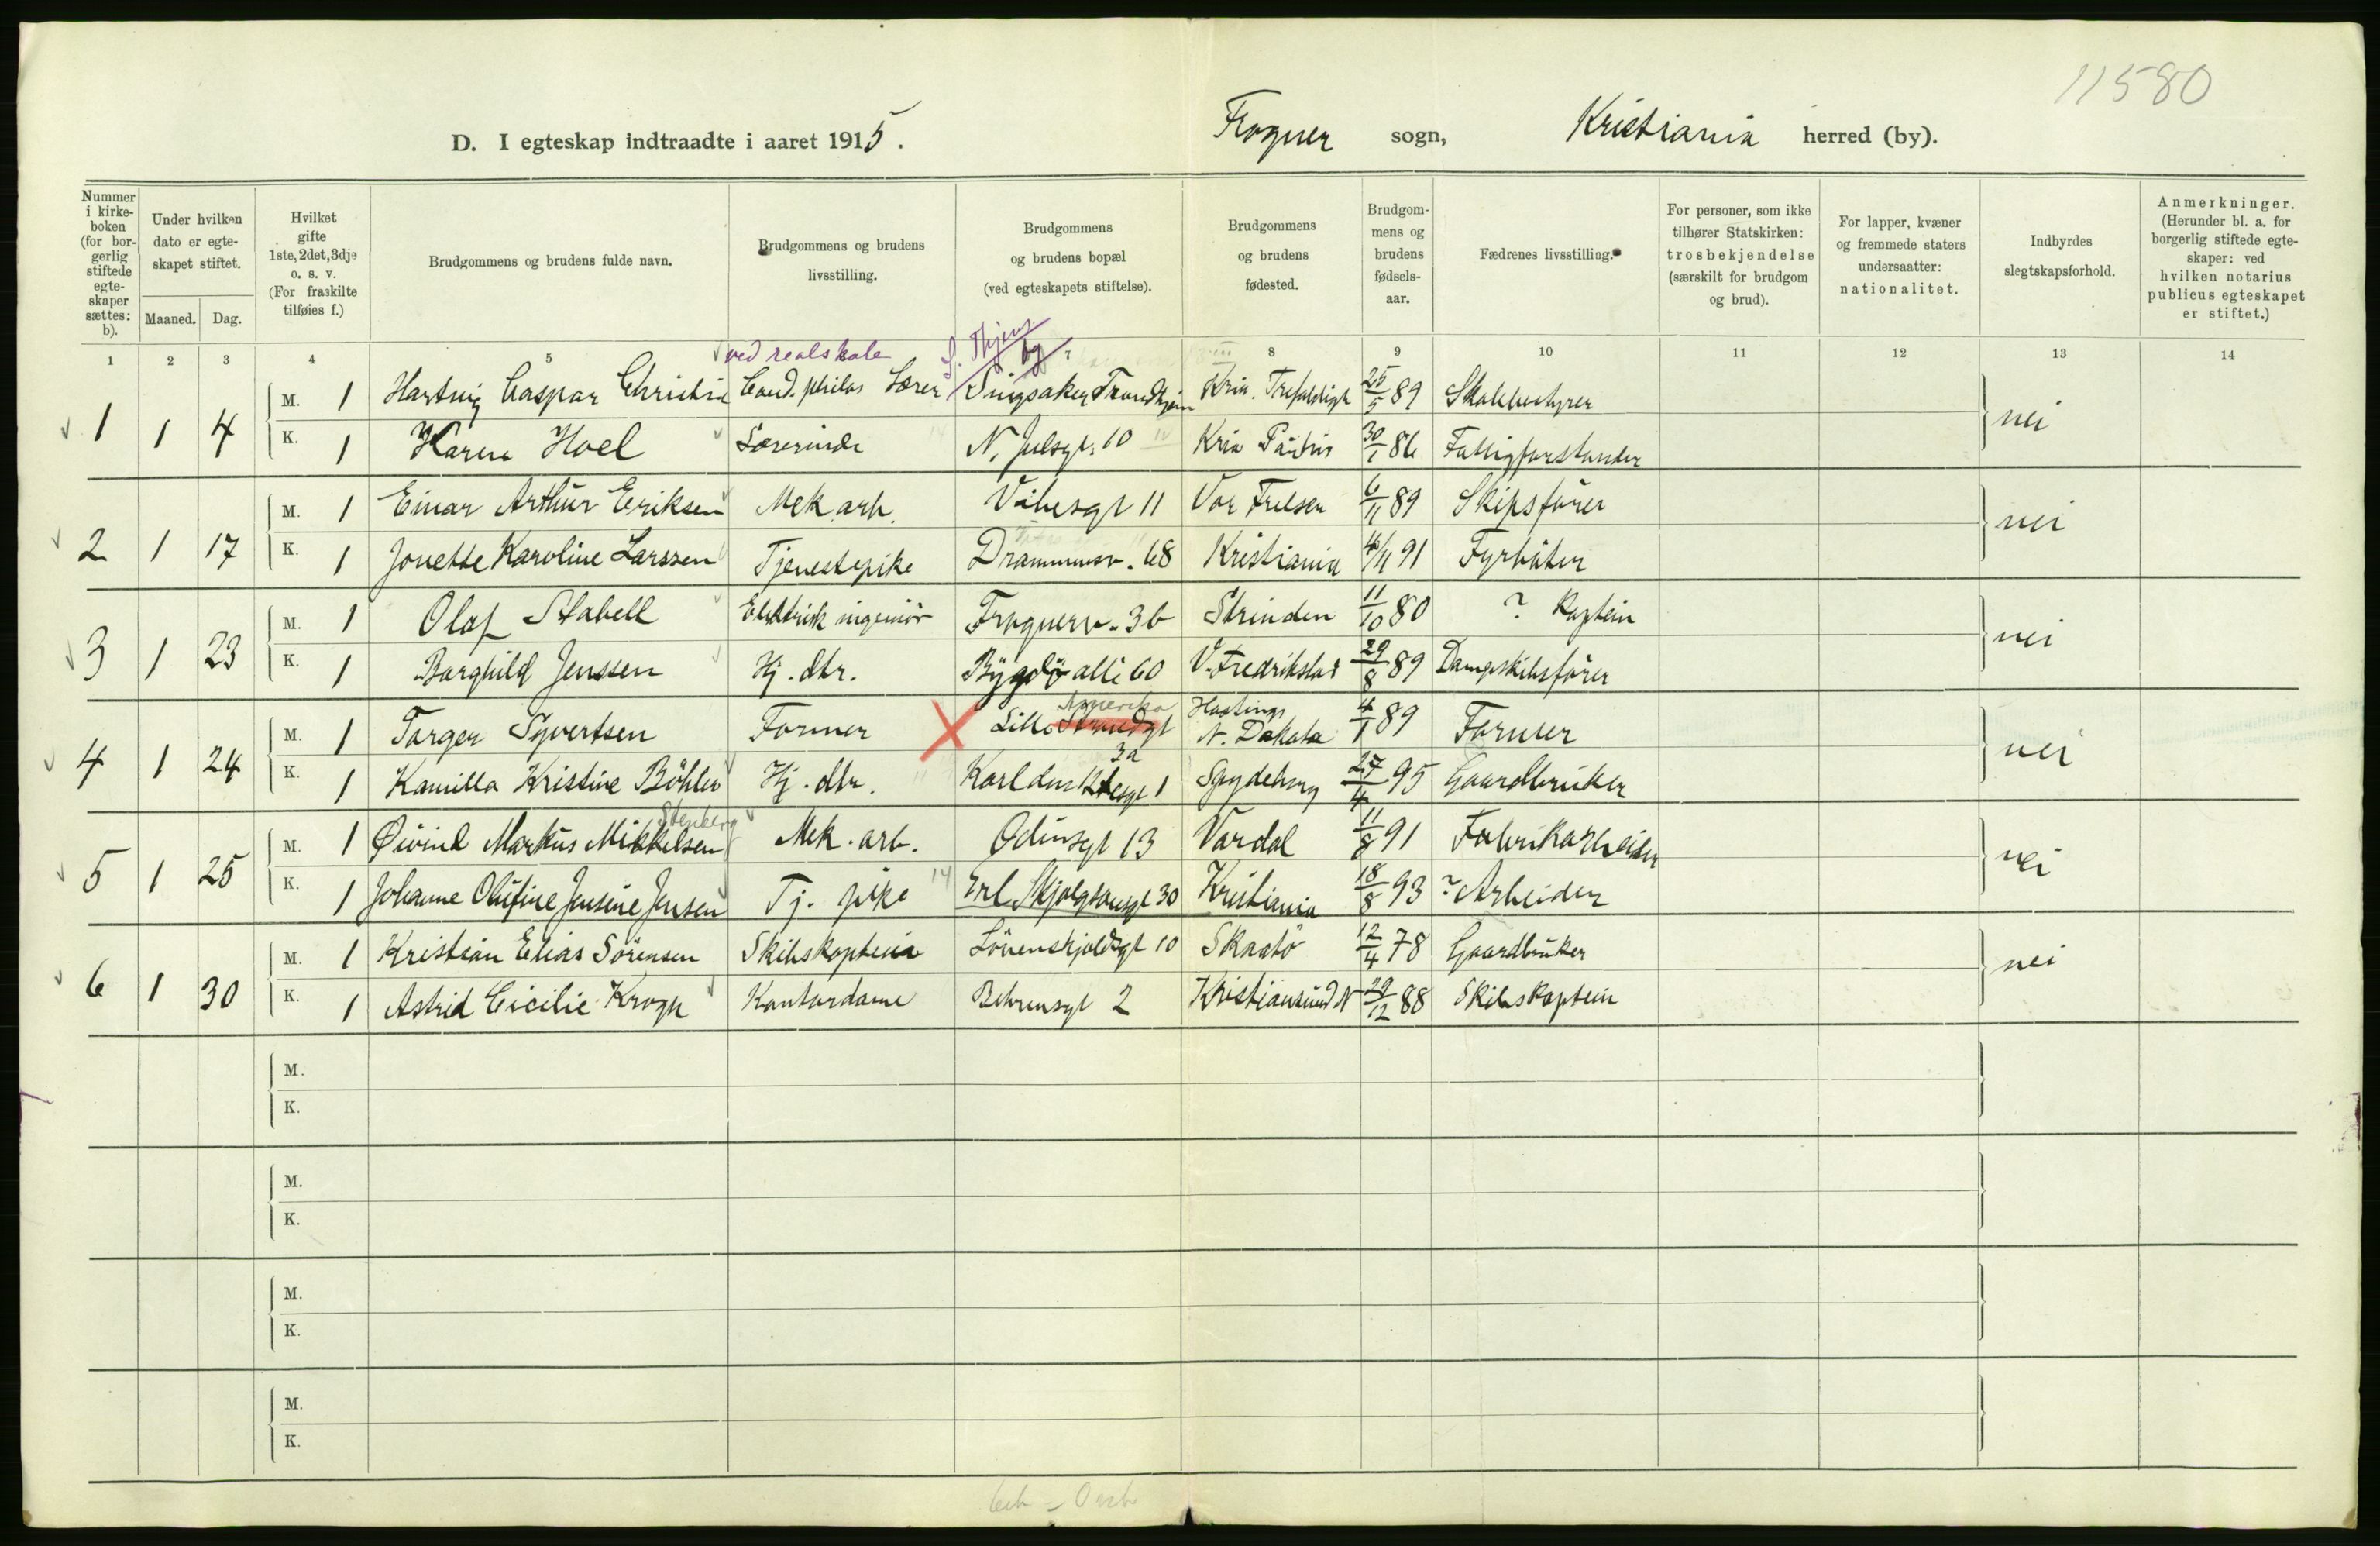 11580
D. I egteskap indtraadte i aaret 1915. Frogner sogn, Kristiania herred (by).
Nummer i kirkeboken (for borgerlig stiftede egteskaper sættes: b).
Under hvilken dato er egteskapet stiftet.
Maaned. Dag.
Hvilket gifte 1ste, 2det, 3dje o. s. v. (For fraskilte tilføies f.)
Brudgommens og brudens fulde navn.
Brudgommens og brudens livsstilling.
Brudgommens og brudens bopæl (ved egteskapets stiftelse).
Brudgommens og brudens fødested.
Brudgommens og brudens fødselsaar.
Fædrenes livsstilling.
For personer, som ikke tilhører Statskirken: trosbekjendelse (særskilt for brudgom og brud).
For lapper, kvæner og fremmede staters undersaatter: nationalitet.
Indbyrdes slegtskapsforhold.
Anmerkninger. (Herunder bl. a. for borgerlig stiftede egteskaper: ved hvilken notarius publicus egteskapet er stiftet.)
1 2 3 4 5 7 8 9 10 11 12 13 14
ved realskole
1 1 4 M. 1 Hartvig Caspar Christie Cand. philos Lærer Singsaker Trondhjem Kria. Trefoldigh 25/5 89 Skolebestyrer nei
K. 1 Karen Hoel Lærerinde N. Julsgt. 10 Kria Paulus 30/1 86 Fattigforstander
2 1 17 M. 1 Einar Arthur Eriksen Mek arb. Vibesgt 11 Vor Frelser 6/11 89 Skipsfører nei
K. 1 Jonette Karoline Larssen Tjenestepike Drammensv. 68 Kristiania 4/11 91 Fyrbøter
3 1 23 M. 1 Olaf Stabell Elektrisk ingeniør Frognerv. 3b Strinden 11/10 80 ? Kaptein nei
K. 1 Borghild Jenssen Hj. dtr. Bygdø alle 60 V. Fredrikstad 29/8 89 Dampskibsfører
Amerika Hastings
4 1 24 M. 1 Torger Syvertsen Farmer X Lille Strandgt N. Dakota 4/1 89 Farmer nei
3a
K. 1 Kamilla Kristine Bøhler Hj. dtr. Karl den 12tesgt 1 Spydeberg 27/4 95 Gaardbruker
Stenberg
5 1 25 M. 1 Øivind Markus Mikkelsen Mek. arb. Odinsgt 13 Vardal 11/8 91 Fabrikarbeider nei
K. 1 Johanne Olufine Jensine Jensen Tj. pike Erl. Skjalgsønsgt 30 Kristiania 18/8 93 ? Arbeider
6 1 30 M. 1 Kristian Elias Sørensen Skibskaptein Løvenskjoldsgt 10 Skaatø 12/4 78 Gaardbruker nei
K. 1 Astrid Cicilie Krogh Kontordame Behrensgt 2 Kristiansund N 29/12 88 Skibskaptein
M.
K.
M.
K.
M.
K.
M.
K.